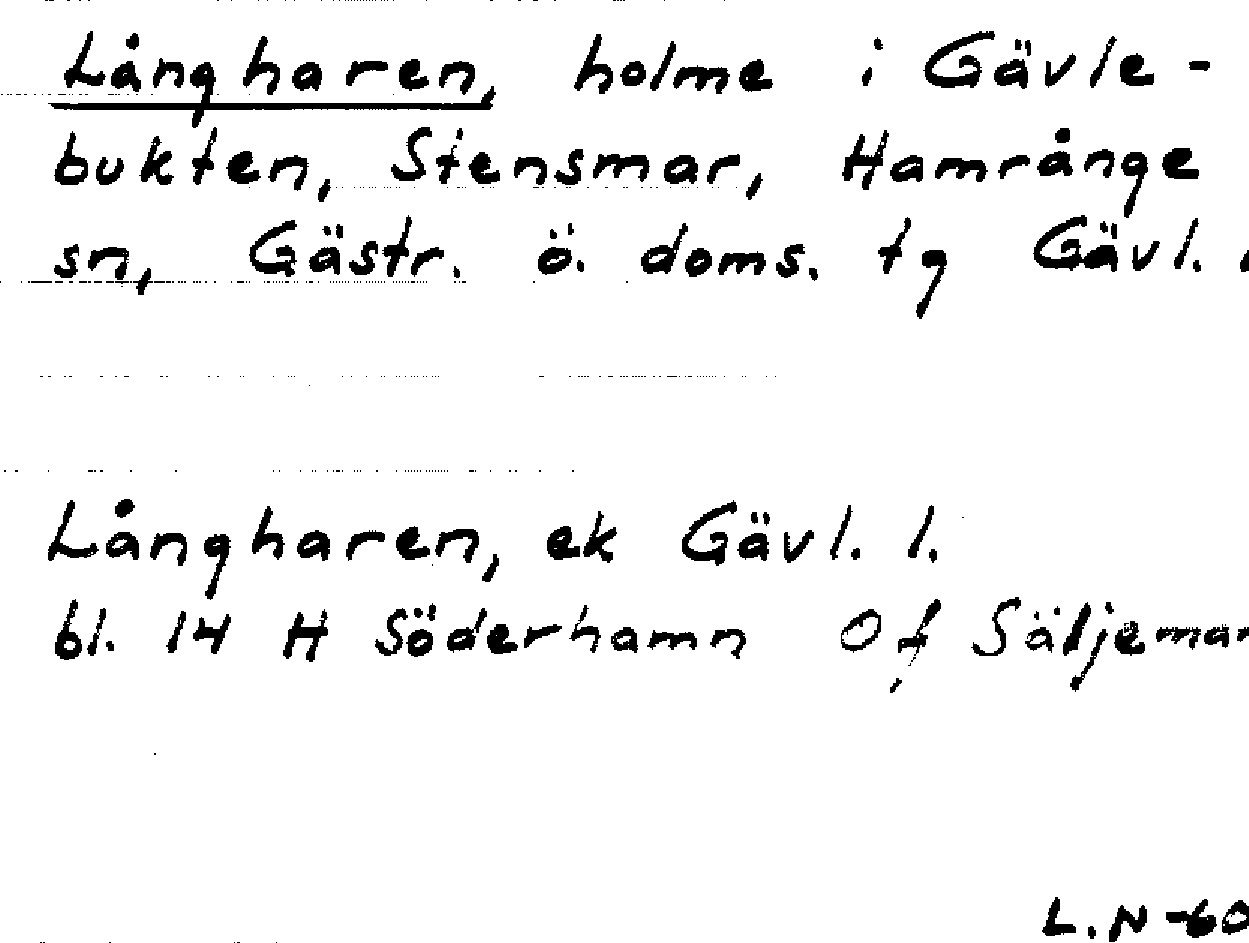 Långharen, holme i Gävle-
bukten, Stensmar, Hamrånge
sn, Gästr. ö. doms. tg Gävl.
Långharen, ek Gävl. l.
bl. 14 H Söderhamn Of Säljemar
L.N-60